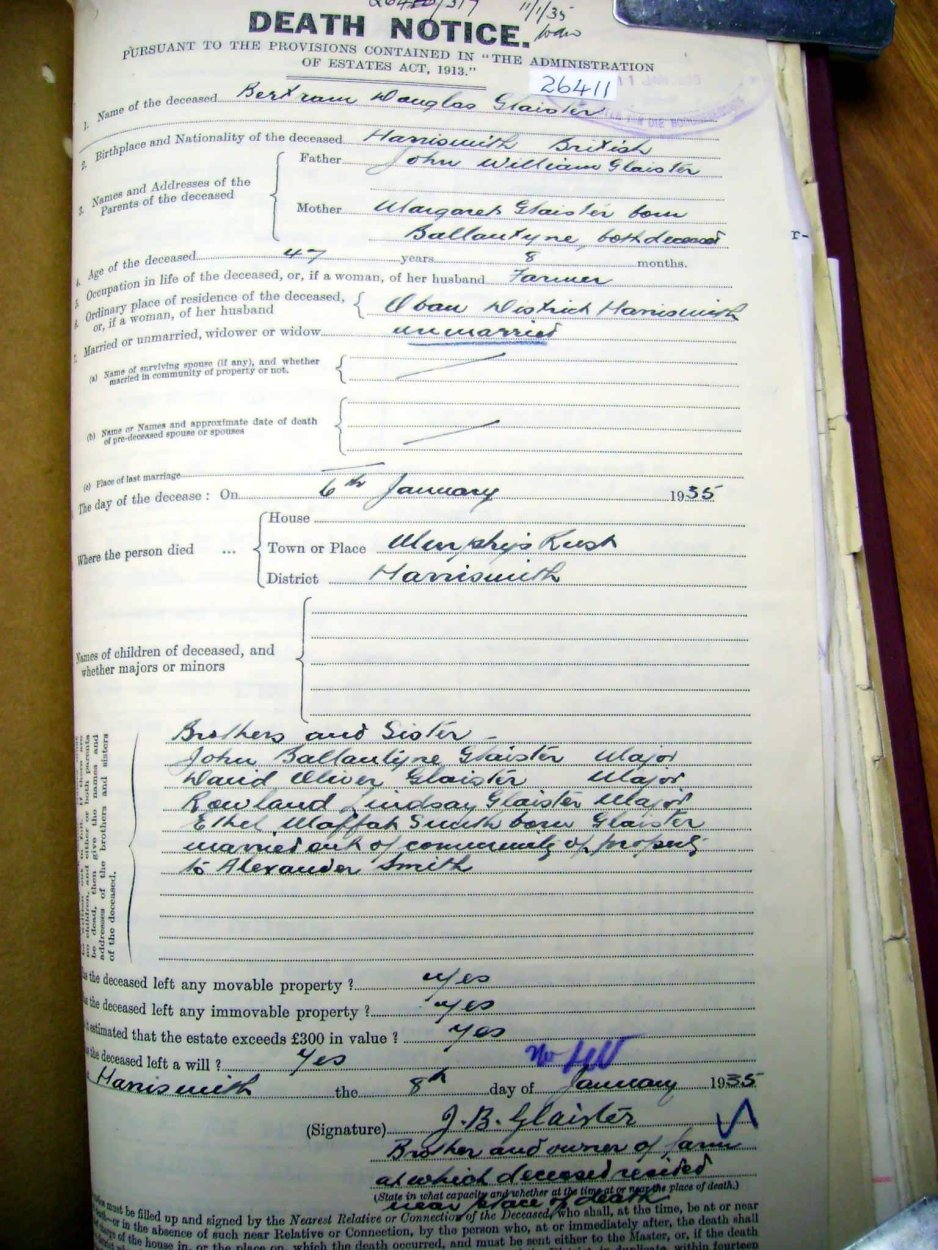 11/1/35
DEATH NOTICE.
PURSUANT TO THE PROVISIONS CONTAINED IN "THE ADMINISTRATION
OF ESTATES ACT, 1913."
26411
1. Name of the deceased Bertram Douglas Glaister
2. Birthplace and Nationality of the deceased Harrismith British
3. Names and Addresses of the Parents of the deceased
Father John William Glaister
Mother Margaret Glaister born
Ballantyne, both deceased
4. Age of the deceased 47 years 8 months.
5. Occupation in life of the deceased, or, if a woman, of her husband Farmer
6. Ordinary place of residence of the deceased, or, if a woman, of her husband Oban District Harrismith
7. Married or unmarried, widower or widow unmarried
(a) Name of surviving spouse (if any), and whether
married in community of property or not.
(b) Name or Names and approximate date of death
of pre-deceased spouse or spouses
(c) Place of last marriage
The day of the decease: On 6th January 1935
House
Where the person died ... Town or Place Murphy's Rust
District Harrismith
Names of children of deceased, and
whether majors or minors
Brothers and Sister -
John Ballantyne Glaister Major
David Oliver Glaister Major
Rowland Lindsay Glaister Major
Ethel Moffat Smith born Glaister
married out of community of property
to Alexander Smith
no children, and either or both parents
be dead, then give the names and
addresses of the brothers and sisters
of the deceased.
the deceased left any movable property? Yes
the deceased left any immovable property? Yes
estimated that the estate exceeds £300 in value? Yes
the deceased left a will? Yes
Harrismith the 8th day of January 1935
(Signature) J. B. Glaister
Brother and owner of farm
at which deceased resided
(State in what capacity and whether at the time at or near the place of death.)
near place of death
must be filled up and signed by the Nearest Relative or Connection of the Deceased, who shall, at the time, be at or near
or in the absence of such near Relative or Connection, by the person who, at or immediately after, the death
of the house in, or the place on, which the death occurred, and must be sent either to the Master, or, if the death